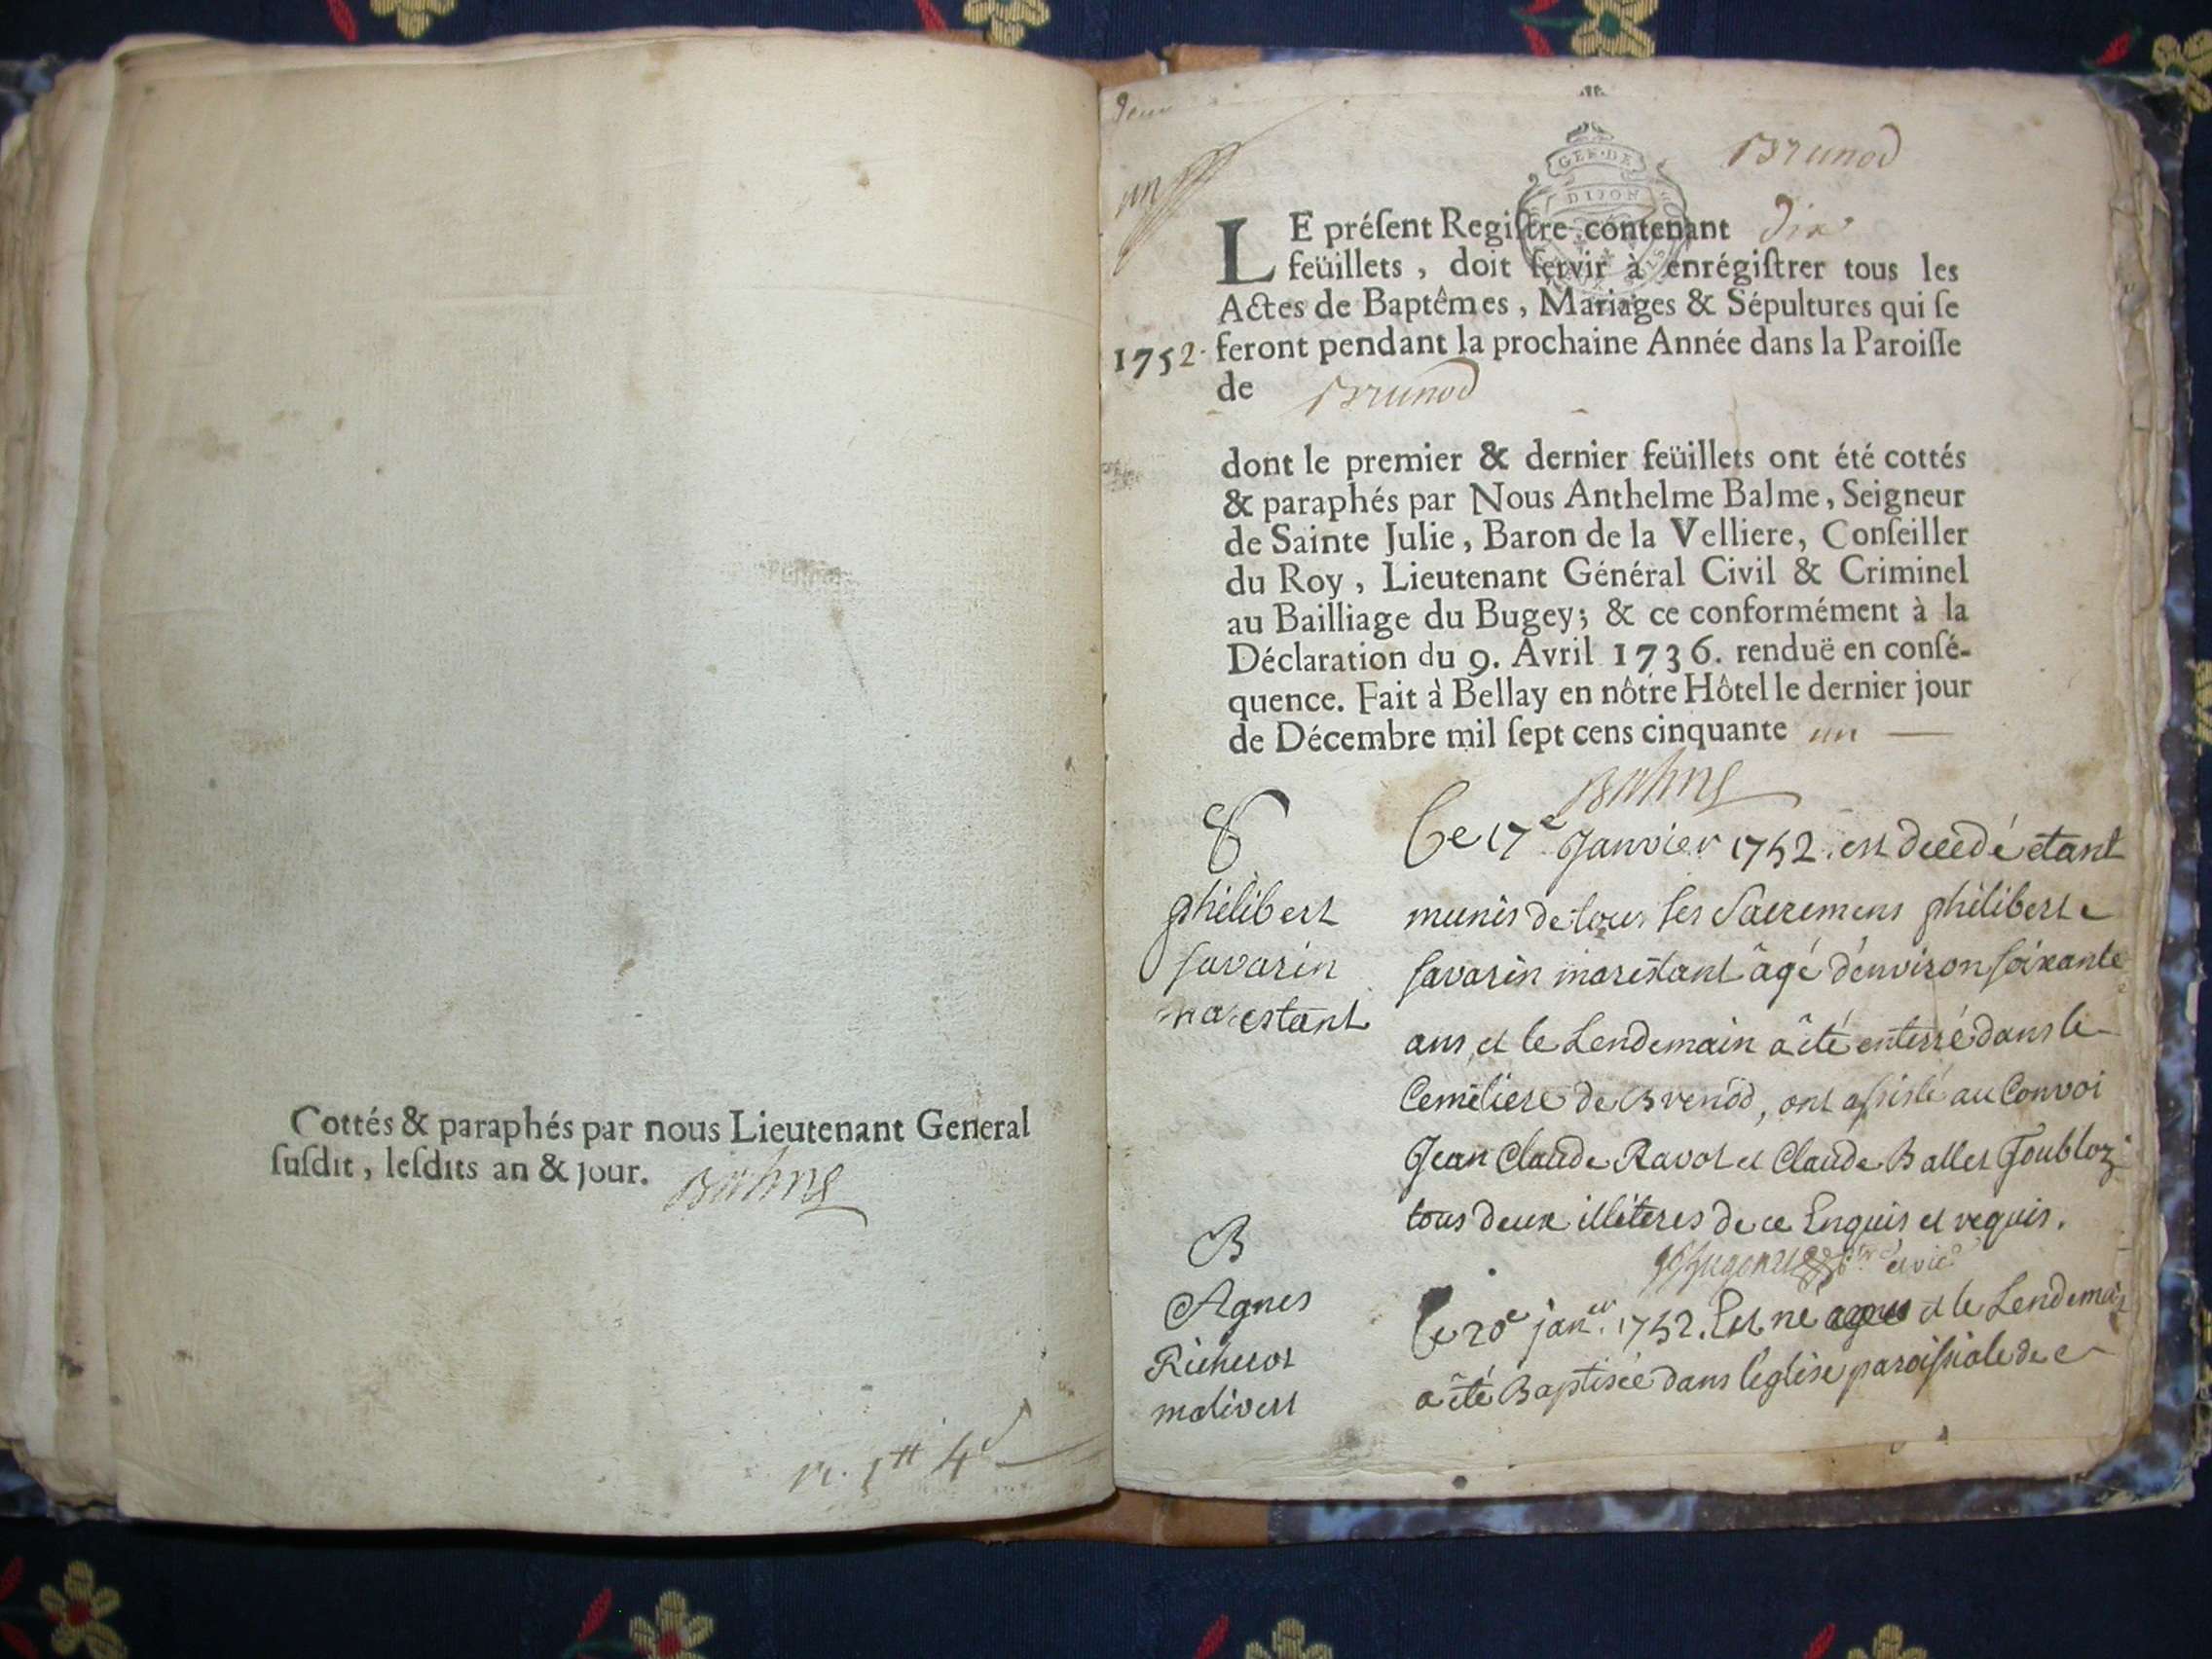 Cottés & paraphés par nous Lieutenant General
ſuſdit, leſdits an & jour.
Balme
1752.
un
Brunod
GEN. DE
DIJON
LE préſent Regiſtre contenant dix
feüillets, doit ſervir à enrégiſtrer tous les
Actes de Baptêmes, Mariages & Sépultures qui ſe
feront pendant la prochaine Année dans la Paroiſſe
de Brunod
dont le premier & dernier feüillets ont été cottés
& paraphés par Nous Anthelme Balme, Seigneur
de Sainte Julie, Baron de la Velliere, Conſeiller
du Roy, Lieutenant Général Civil & Criminel
au Bailliage du Bugey; & ce conformément à la
Déclaration du 9. Avril 1736. renduë en conſé-
quence. Fait à Bellay en nôtre Hôtel le dernier jour
de Décembre mil ſept cens cinquante un
Balme
philibert
savarin
marestant
Le 17e Janvier 1752. est decedé etant
munis de tous ses Sacremens philibert
savarin marestant âgé d'environ soixante
ans, et le Lendemain a été enterré dans le
Cemetiere de Brenod, ont assisté au Convoi
Jean Claude Ravot et Claude Ballet Joubloz
tous deux illiteres de ce Enquis et requis.
B
Agnes
Richerot
malivert
Le 20e janer. 1752. Est né et le Lendemain
a été Baptisée dans l'eglise paroissiale de